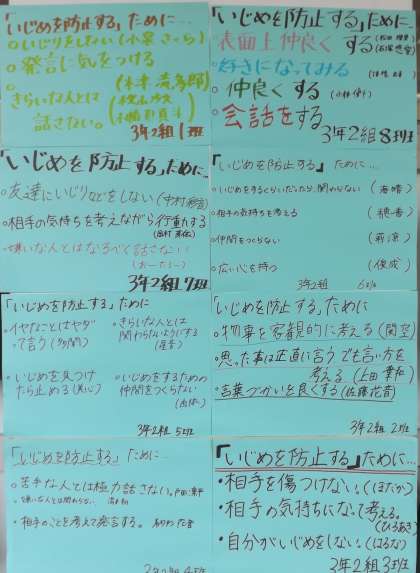 「いじめを防止する」ために…
○いじりをしない
○発言に気をつける
きらいな人とは
話さない。
3年2組1班
「いじめを防止する」ために…
○表面上仲良くする
○好きになってみる
○仲良くする
○会話をする
3年2組8班
「いじめを防止する」ために…
○友達にいじりなどをしない
○相手の気持ちを考えながら行動する
○嫌いな人とはなるべく話さない
3年2組7班
「いじめを防止する」ために…
○いじめをするくらいだったら、関わらない
○相手の気持ちを考える
○仲間をつくらない
○広い心を持つ
3年2組
「いじめを防止する」ために
○イヤなことはヤダ
って言う
○きらいな人とは
関わらないようにする
○いじめを見つけ
たら止める
○いじめをするための
仲間をつくらない
3年2組5班
「いじめを防止する」ために
○物事を客観的に考える
○思った事は正直に言うでも言い方を
考える
○言葉づかいを良くする
3年2組2班
「いじめを防止する」ために…
○苦手な人とは極力話さない。
○嫌いな人とは関わらない
○相手のことを考えて発言する。
「いじめを防止する」ために…
・相手を傷つけない。(ほだか)
・相手の気持ちになって考える。
(ひろあき)
・自分がいじめをしない。(はるな)
3年2組3班